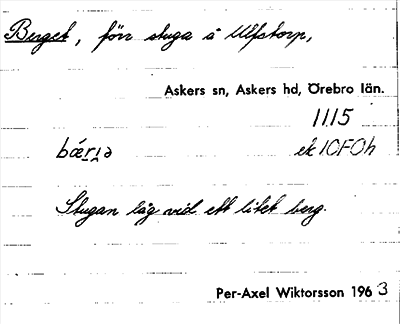 Berget, förr stuga å Ulfstorp,
Askers sn, Askers hd, Örebro län.
1115
bær̲i̲ə ek 10F0h
Stugan låg vid ett litet berg.
Per-Axel Wiktorsson 1963